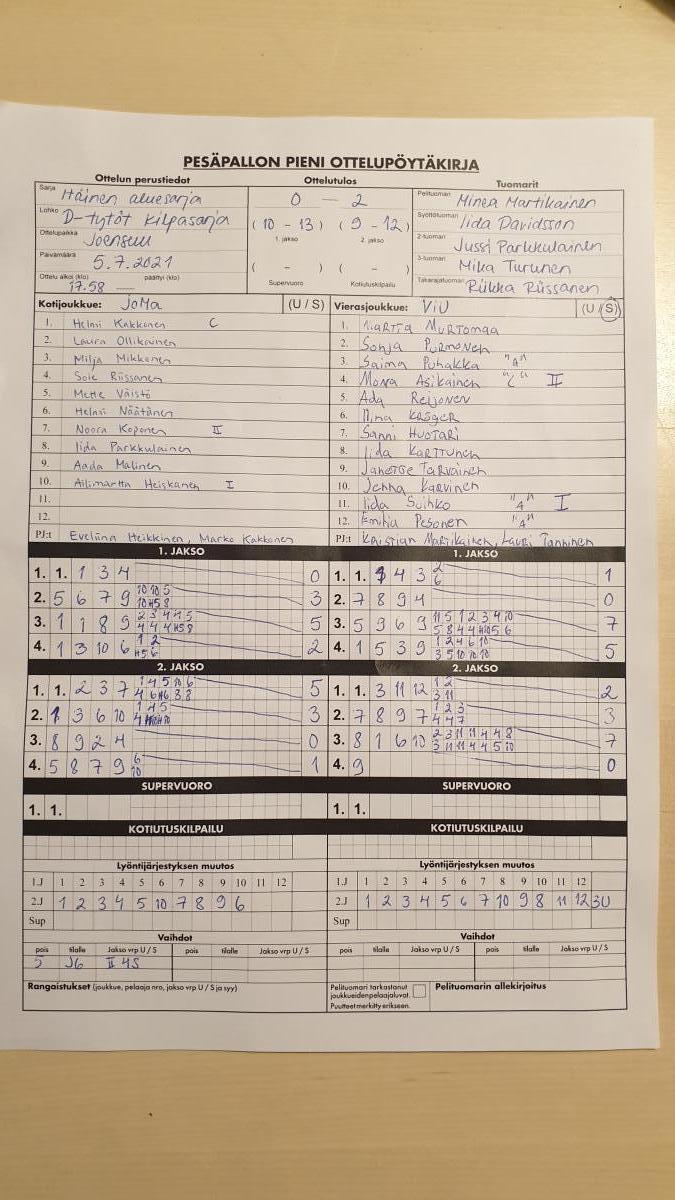 PESÄPALLON PIENI OTTELUPÖYTÄKIRJA
Ottelun perustiedot Ottelutulos Tuomarit
Sarja Itäinen aluesarja
Lohko D-tytöt kilpasarja
Ottelupaikka Joensuu
Päivämäärä 5.7.2021
Ottelu alkoi (klo) 17.58 päättyi (klo) —
0 — 2
(10 - 13) (9 - 12)
1. jakso 2. jakso
( - ) ( - )
Supervuoro Kotiutuskilpailu
Pelituomari Minea Martikainen
Syöttötuomari Iida Davidsson
2-tuomari Jussi Parkkulainen
3-tuomari Mika Turunen
Takarajatuomari Riikka Riissanen
Kotijoukkue: JoMa (U / S)
1. Helmi Kakkonen C
2. Laura Ollikainen
3. Milja Mikkonen
4. Soie Riissanen
5. Mette Väistö
6. Helmi Näätänen
7. Noora Koponen II
8. Iida Parkkulainen
9. Aada Malinen
10. Ailimartta Heiskanen I
11.
12.
PJ:t Eveliina Heikkinen, Marko Kakkonen
Vierasjoukkue: ViU (U / S)
1. Martta Murtomaa
2. Sonja Purmonen
3. Saima Puhakka "A"
4. Mona Asikainen "C" II
5. Ada Reijonen
6. Nina Kröger
7. Sanni Huotari
8. Iida Karttunen
9. Janette Tarvainen
10. Jenna Karvinen
11. Iida Suihko "A" I
12. Emilia Pesonen "A"
PJ:t Kristian Martikainen, Lauri Tanninen
1. JAKSO 1. JAKSO
1. 1. 1 3 4 0
2. 5 6 7 9 3
3. 1 1 8 9 5
4. 1 3 10 6 2
1. 1. 4 3 2 6 1
2. 7 8 9 4 0
3. 5 9 6 9 7
4. 1 5 3 9 5
2. JAKSO 2. JAKSO
1. 1. 2 3 7 5
2. 1 3 6 10 3
3. 8 9 2 4 0
4. 5 8 7 9 6 10 1
1. 1. 3 11 12 2
2. 7 8 9 7 3
3. 8 1 6 10 7
4. 9 0
SUPERVUORO SUPERVUORO
1. 1. 1. 1.
KOTIUTUSKILPAILU KOTIUTUSKILPAILU
Lyöntijärjestyksen muutos Lyöntijärjestyksen muutos
1.J 1 2 3 4 5 6 7 8 9 10 11 12
2.J 1 2 3 4 5 10 7 8 9 6
Sup
1.J 1 2 3 4 5 6 7 8 9 10 11 12
2.J 1 2 3 4 5 6 7 10 9 8 11 12 3U
Sup
Vaihdot Vaihdot
pois tilalle Jakso vrp U / S pois tilalle Jakso vrp U / S
5 J6 II 4S
pois tilalle Jakso vrp U / S pois tilalle Jakso vrp U / S
Rangaistukset (joukkue, pelaaja nro, jakso vrp U / S ja syy)
Pelituomari tarkastanut
joukkueiden pelaajaluvat.
Puutteet merkitty erikseen.
Pelituomarin allekirjoitus